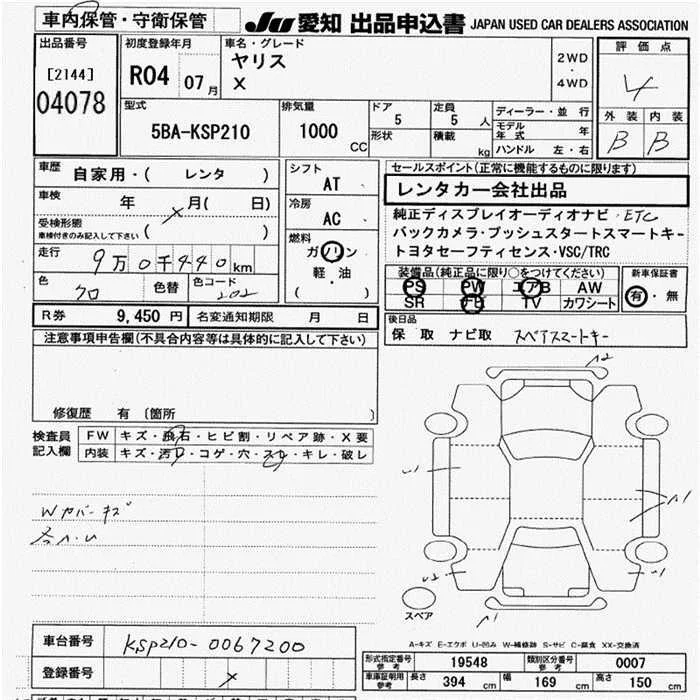 車内保管・守衛保管
JU 愛知 出品申込書 JAPAN USED CAR DEALERS ASSOCIATION
出品番号
[2144]
04078
初度登録年月
R04 07月
車名・グレード
ヤリス
X
2WD
・
4WD
評価点
4
外装 内装
B B
型式
5BA-KSP210
排気量
1000
CC
ドア
5
定員
5 人
形状
積載
kg
ディーラー・並行
モデル年式 年
ハンドル 左・右
車歴
自家用・( レンタ )
車検
年 月( 日)
受検形態
車検付きのみ記入して下さい ( )
走行
9万0千440km
色
クロ
色替
色コード
202
シフト
AT
冷房
AC
燃料
ガソリン
軽・油
( )
セールスポイント(正常に機能するものに限ります)
レンタカー会社出品
純正ディスプレイオーディオナビ・ETC
バックカメラ・プッシュスタートスマートキー
トヨタセーフティセンス・VSC/TRC
装備品(純正品に限り○をつけてください)
PS PW エアB AW
SR ナビ TV カワシート
新車保証書
有・無
後日品
保 取 ナビ取 スペアスマートキー
R券 9,450 円 名変通知期限 月 日
注意事項申告欄(不具合内容等は具体的に記入して下さい)
修復歴 有 〔箇所 〕
検査員
記入欄
FW キズ・飛石・ヒビ割・リペア跡・X要
内装 キズ・汚れ・コゲ・穴・スレ・キレ・破レ
Wカバーキズ
各A・U
A2
U1
A1
U2
U1
A1
スペア
A-キズ E-エクボ U-凹み W-補修跡 S-サビ C-腐食 XX-交換済
車台番号 KSP210-0067200
登録番号 X
形式指定番号 参考 19548 類別区分番号 参考 0007
車庫証明用 参考 長さ 394 cm 幅 169 cm 高さ 150 cm